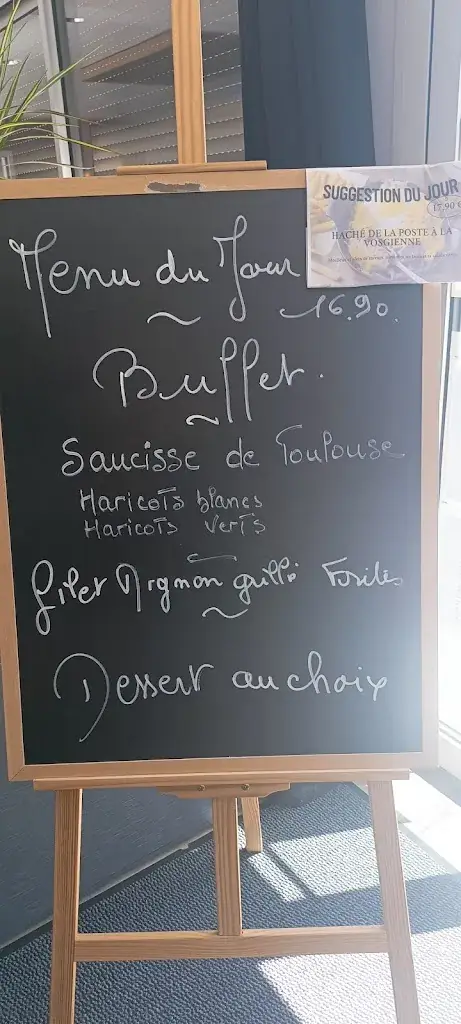 SUGGESTION DU JOUR
17.90 €
HACHÉ DE LA POSTE À LA
VOSGIENNE
Menu du Jour
16.90.
Buffet.
Saucisse de Toulouse
Haricots blancs
Haricots verts
Filet Mignon grillé
Dessert au choix